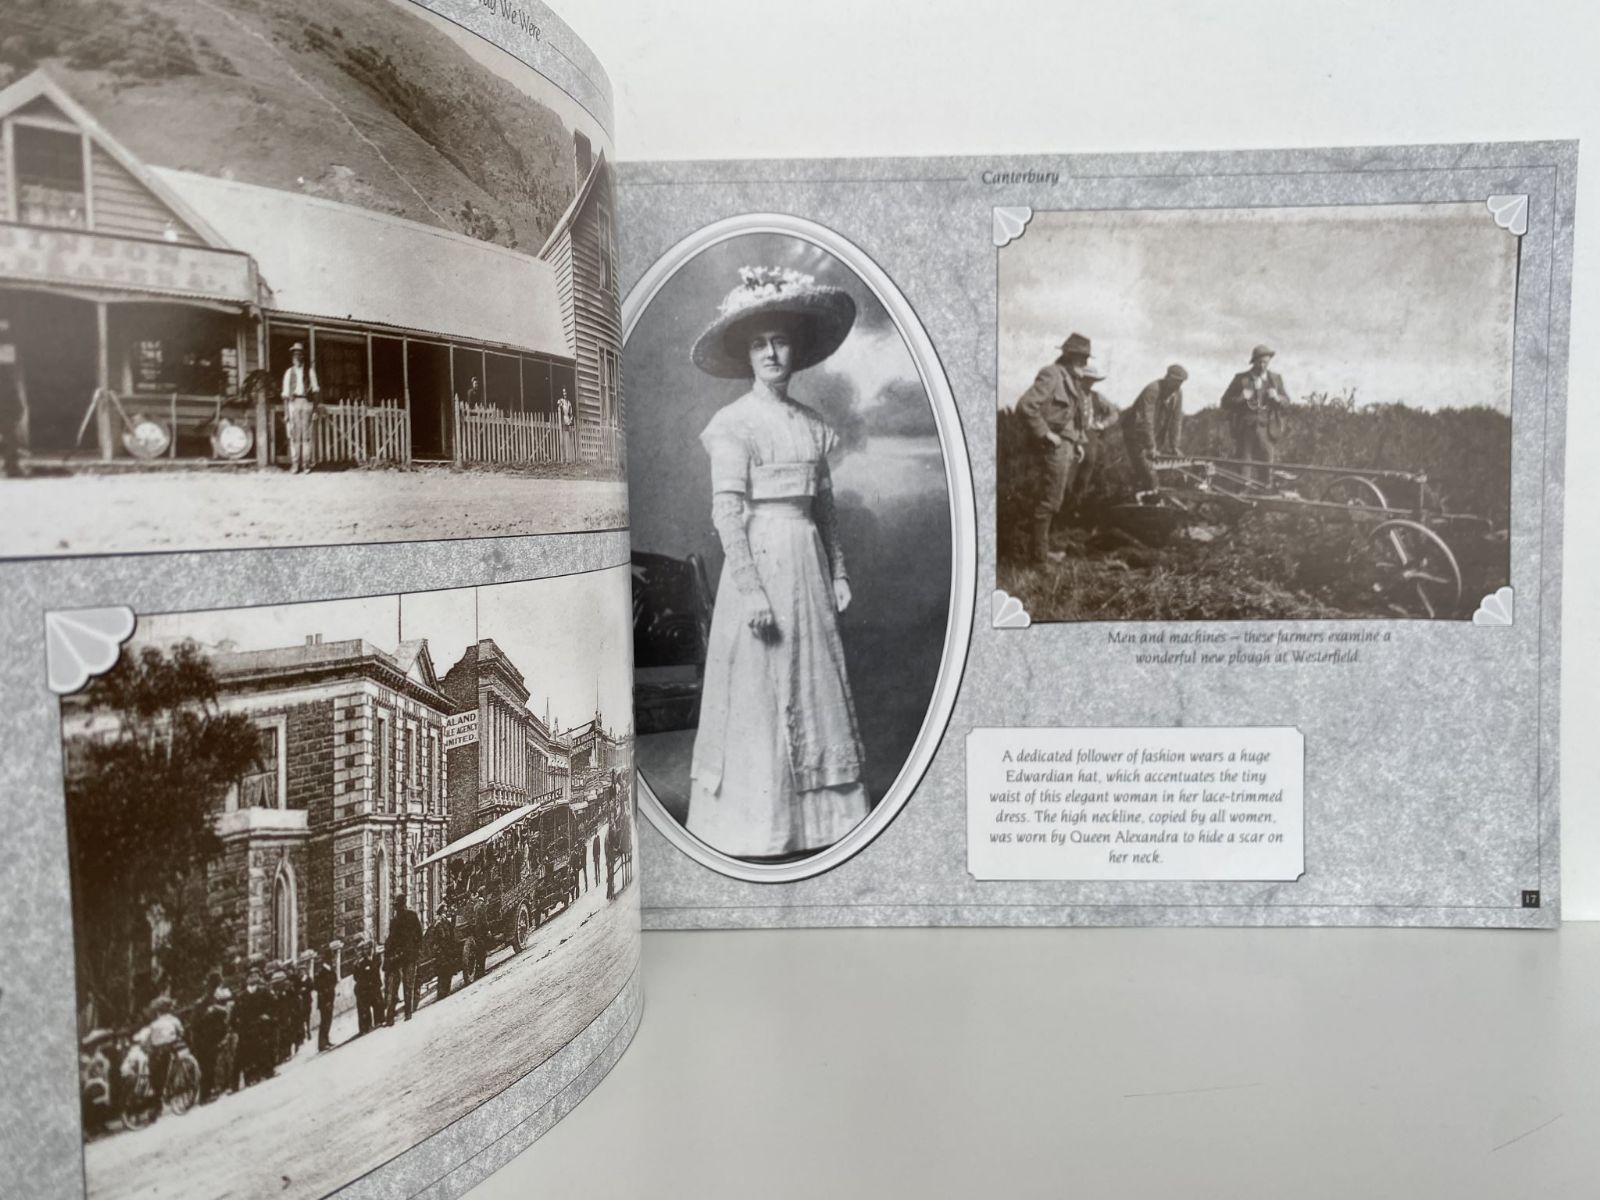 We Were
ALAND
LE AGENCY
MITED.
Canterbury
Men and machines – these farmers examine a
wonderful new plough at Westerfield.
A dedicated follower of fashion wears a huge
Edwardian hat, which accentuates the tiny
waist of this elegant woman in her lace-trimmed
dress. The high neckline, copied by all women,
was worn by Queen Alexandra to hide a scar on
her neck.
17